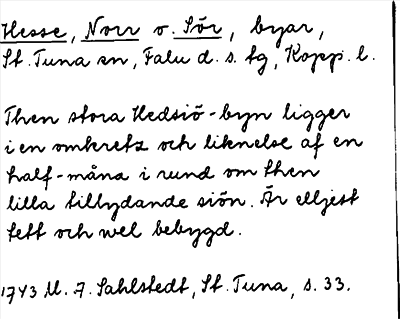 Hesse, Norr o. Sör, byar,
St. Tuna sn, Falu d. s. tg, Kopp. l.
Then stora Hedsiö-byn ligger
i en omkretz och liknelse af en
half-måna i rund om then
lilla tillydande siön. Är elljest
tett och wel bebygd.
1743 M. A. Sahlstedt, St. Tuna, s. 33.